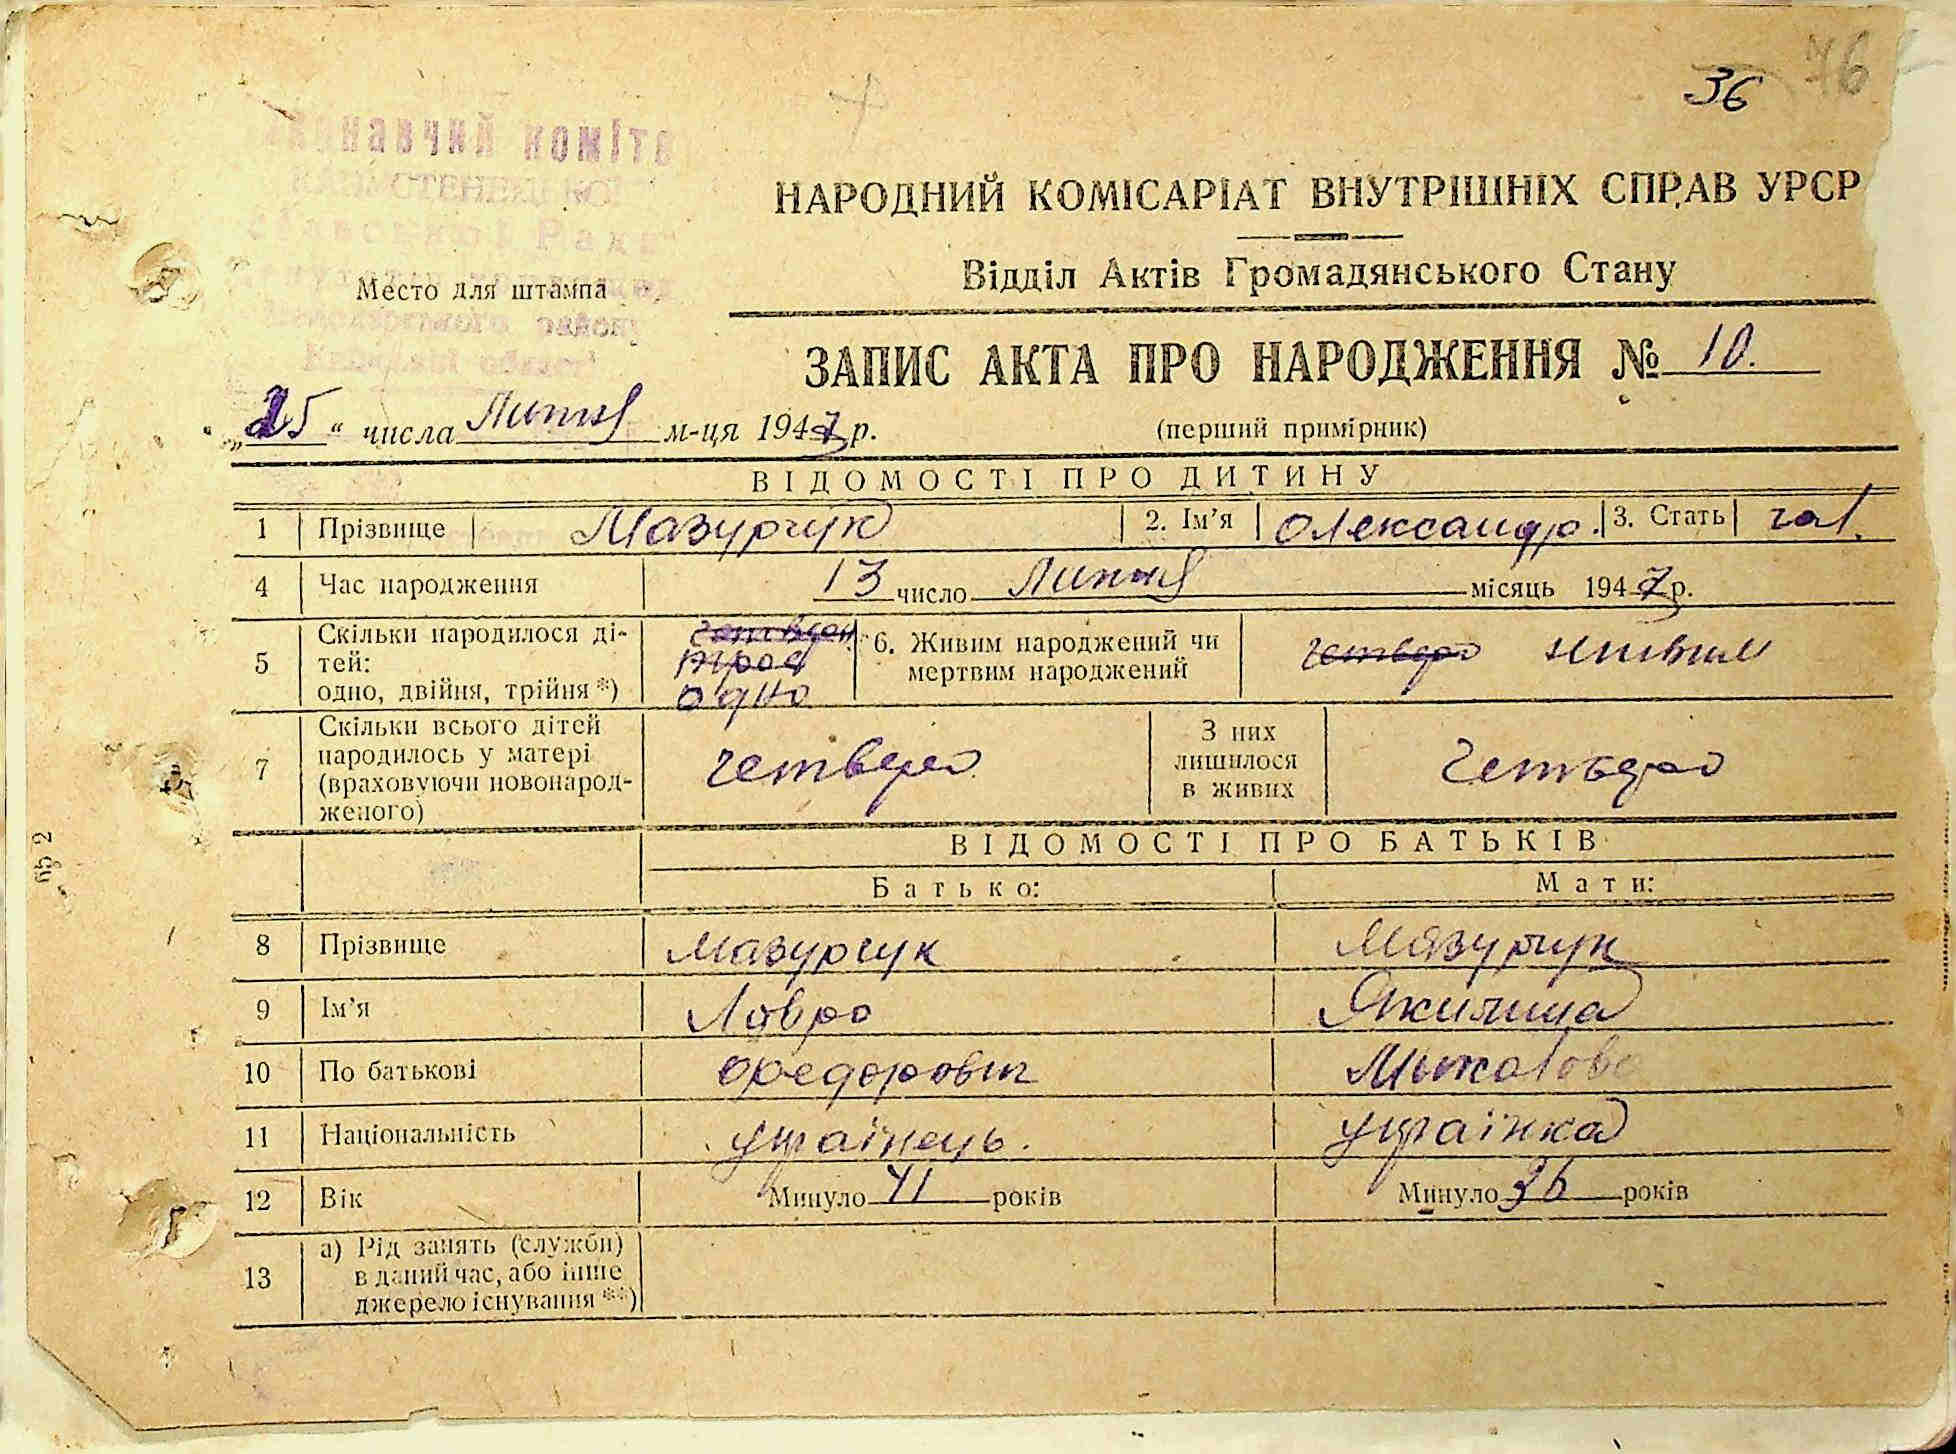 36 76
НАРОДНИЙ КОМІСАРІАТ ВНУТРІШНІХ СПРАВ УРСР
Відділ Актів Громадянського Стану
Место для штампа
ЗАПИС АКТА ПРО НАРОДЖЕННЯ № 10.
„25“ числа Липня м-ця 1947 р.
(перший примірник)
ВІДОМОСТІ ПРО ДИТИНУ
1 Прізвище Мазурчук 2. Ім’я Олександр. 3. Стать чол.
4 Час народження 13 число Липня місяць 1947 р.
5 Скільки народилося ді-
тей:
одно, двійня, трійня *)
четверо
троє
одно
6. Живим народжений чи
мертвим народжений
четверо живим
7 Скільки всього дітей
народилось у матері
(враховуючи новонарод-
женого)
четверо
З них
лишилося
в живих
четверо
ВІДОМОСТІ ПРО БАТЬКІВ
Батько: Мати:
8 Прізвище Мазурчук Мазурчук
9 Ім’я Лавро Якилина
10 По батькові Федорович
11 Національність українець. українка
12 Вік Минуло 41 років Минуло 36 років
13 а) Рід занять (служби)
в даний час, або інше
джерело існування **)